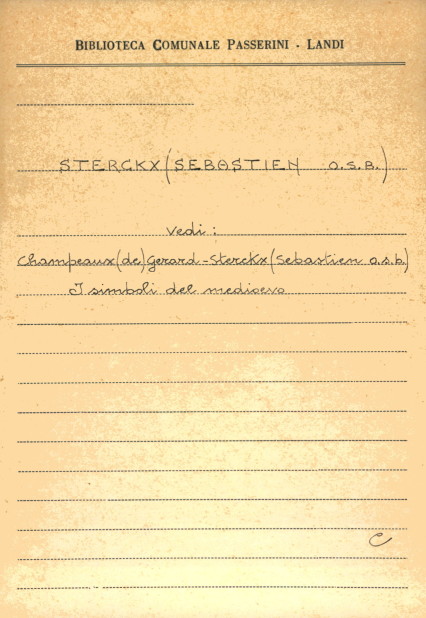 BIBLIOTECA COMUNALE PASSERINI - LANDI
STERCKX (SEBASTIEN O.S.B.)
Vedi:
Champeaux (de) Gerard - Sterckx (Sebastien o.s.b.)
I simboli del medioevo
C